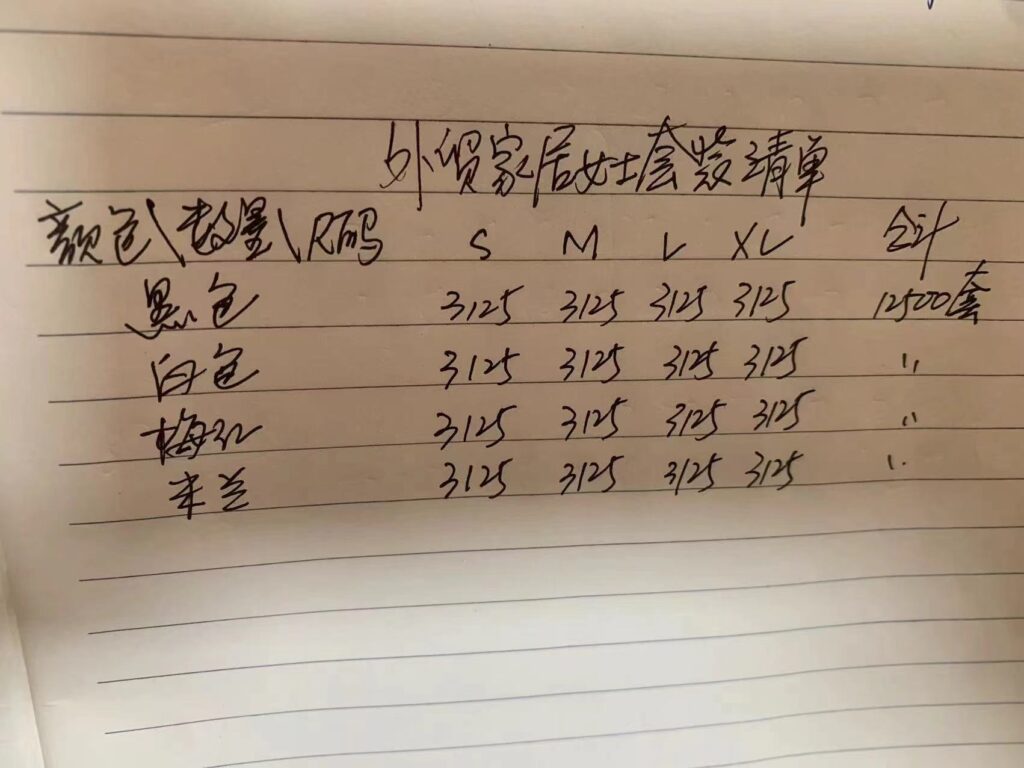 外贸家居女士套装清单
颜色\数量\尺码 S M L XL 合计
黑色 3125 3125 3125 3125 12500套
白色 3125 3125 3125 3125 〃
梅红 3125 3125 3125 3125 〃
米兰 3125 3125 3125 3125 〃